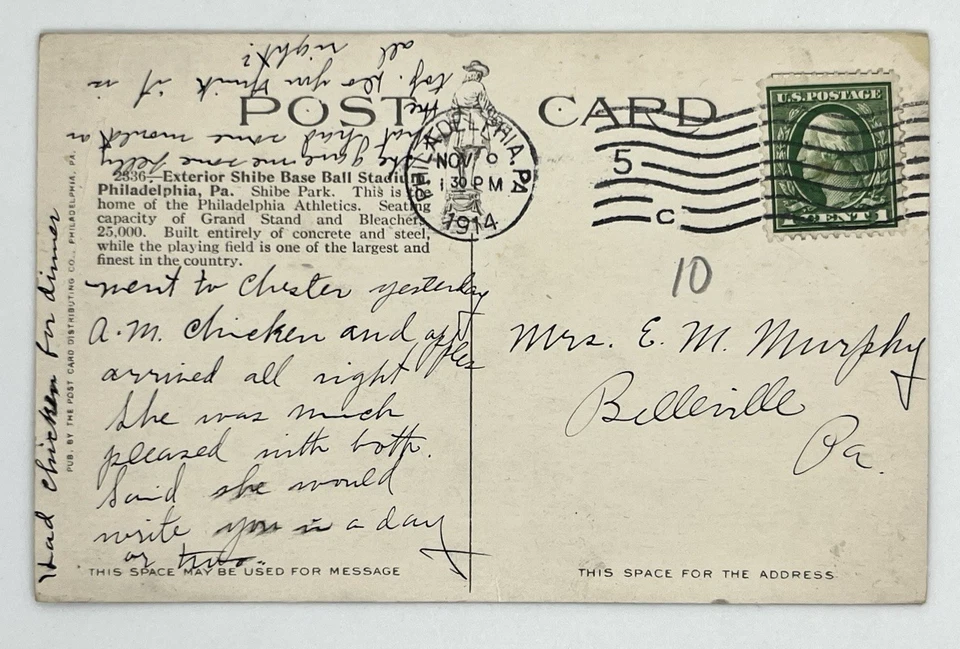 POST CARD
PHILADELPHIA, PA
NOV 9
1 30 PM
1914
5
C
U.S. POSTAGE
1 CENT 1
2336—Exterior Shibe Base Ball Stadium,
Philadelphia, Pa. Shibe Park. This is
home of the Philadelphia Athletics. Seating
capacity of Grand Stand and Bleachers
25,000. Built entirely of concrete and steel,
while the playing field is one of the largest and
finest in the country.
PUB. BY THE POST CARD DISTRIBUTING CO., PHILADELPHIA, PA.
went to Chester yesterday
A.M. Chicken and apples
arrived all right
She was much
pleased with both.
Said she would
write you in a day
or two.
She gave me some jelly
that had some mould on
the top. Do you think it is
all right?
Had chicken for dinner
10
Mrs. E. M. Murphy
Belleville
Pa.
THIS SPACE MAY BE USED FOR MESSAGE
THIS SPACE FOR THE ADDRESS